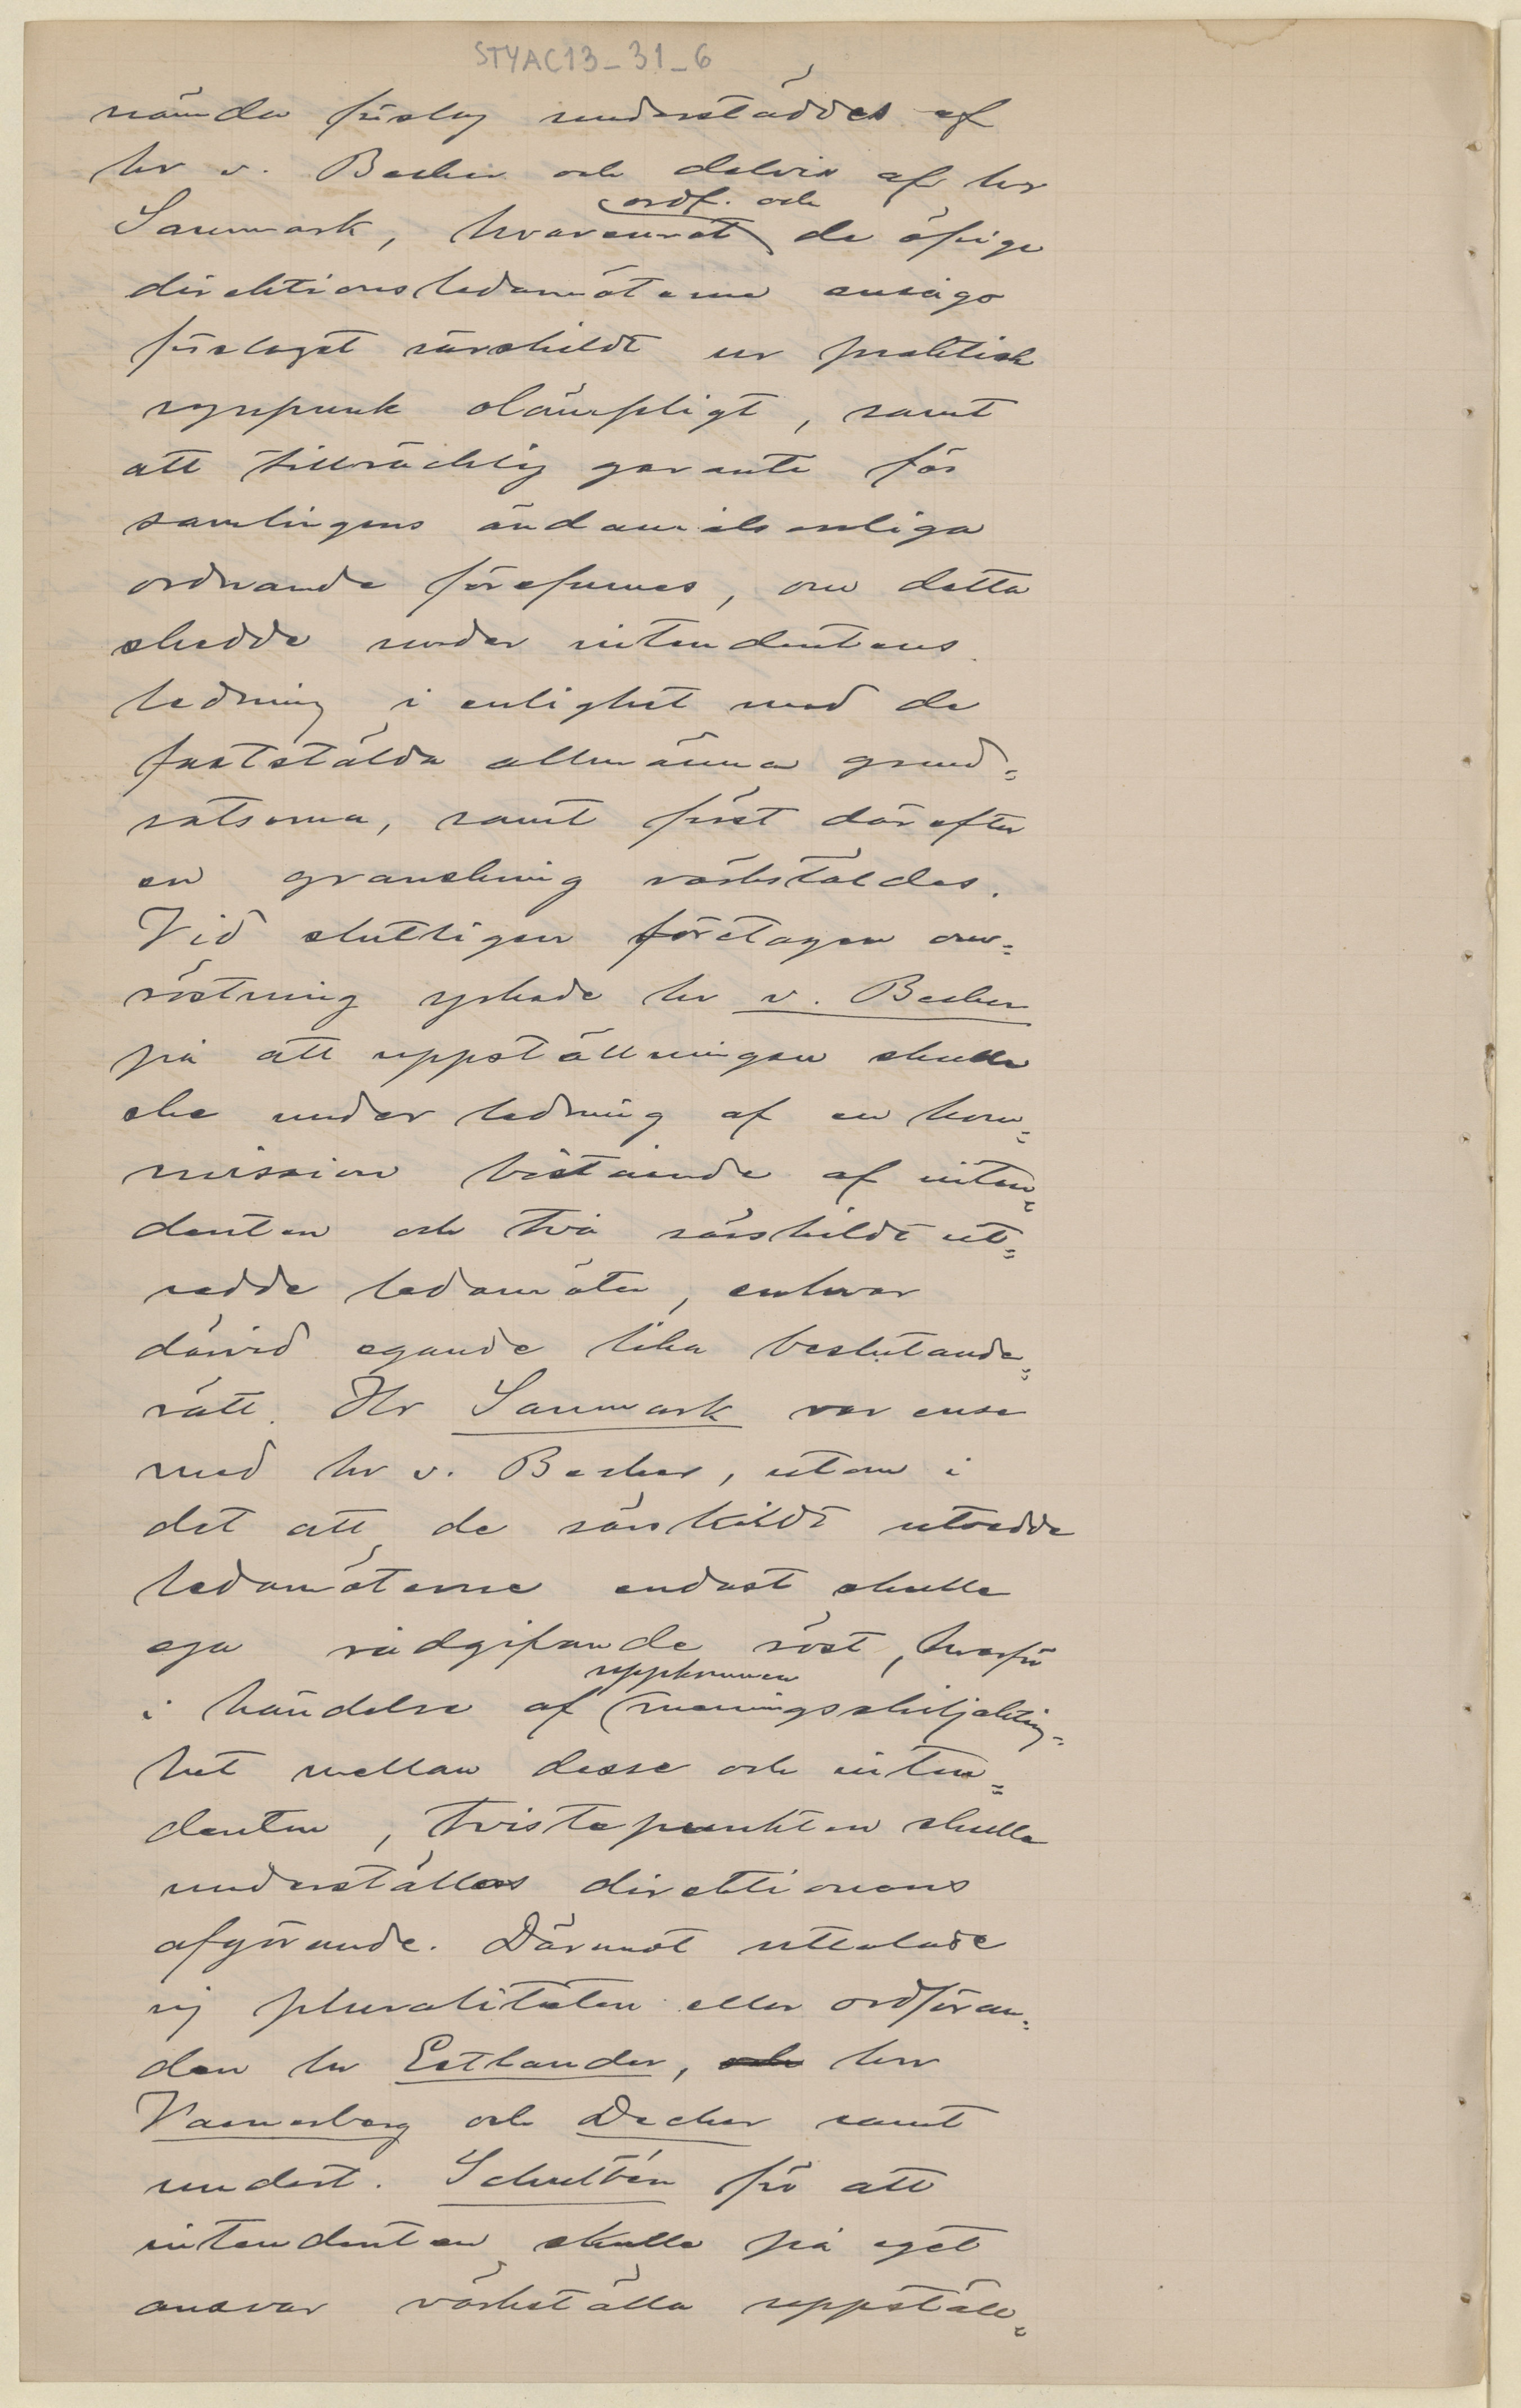 STYAC13_31_6
nämda förslag understöddes af
hr v. Becker och delvis af hr
ordf. och
Sanmark, hvaremot de öfriga
direktionsledamöterne ansågo
förslaget särskildt ur praktisk
synpunk olämpligt, samt
att tillräcklig garanti för
samlingens ändamålsenliga
ordnande förefunnes, om detta
skedde under intendentens
ledning i enlighet med de
fastställda allmänna grund=
satserna, samt först därefter
en granskning värkstäldes.
Vid slutligen företagen om=
röstning yrkade hr v. Becker
på att uppställningen skulle
ske under ledning af en kom=
mission bestående af inten=
denten och två särskildt ut=
sedde ledamöter, enhvar
därvid egande lika beslutande=
rätt. Hr Sanmark var ense
med hr v. Becker, utom i
det att de särskildt utsedde
ledamöterne endast skulle
ega rådgifvande röst, hvarför
uppkommen
i händelse af meningsskiljaktig=
het mellan desse och inten=
denten, tvistepunkten skulle
underställas direktionens
afgörande. Däremot uttalade
sig pluraliteten eller ordföran=
den hr Estlander, och hrr
Vasenberg och Decker samt
undert. Schultén för att
intendenten skulle på eget
ansvar värkställa uppställ=